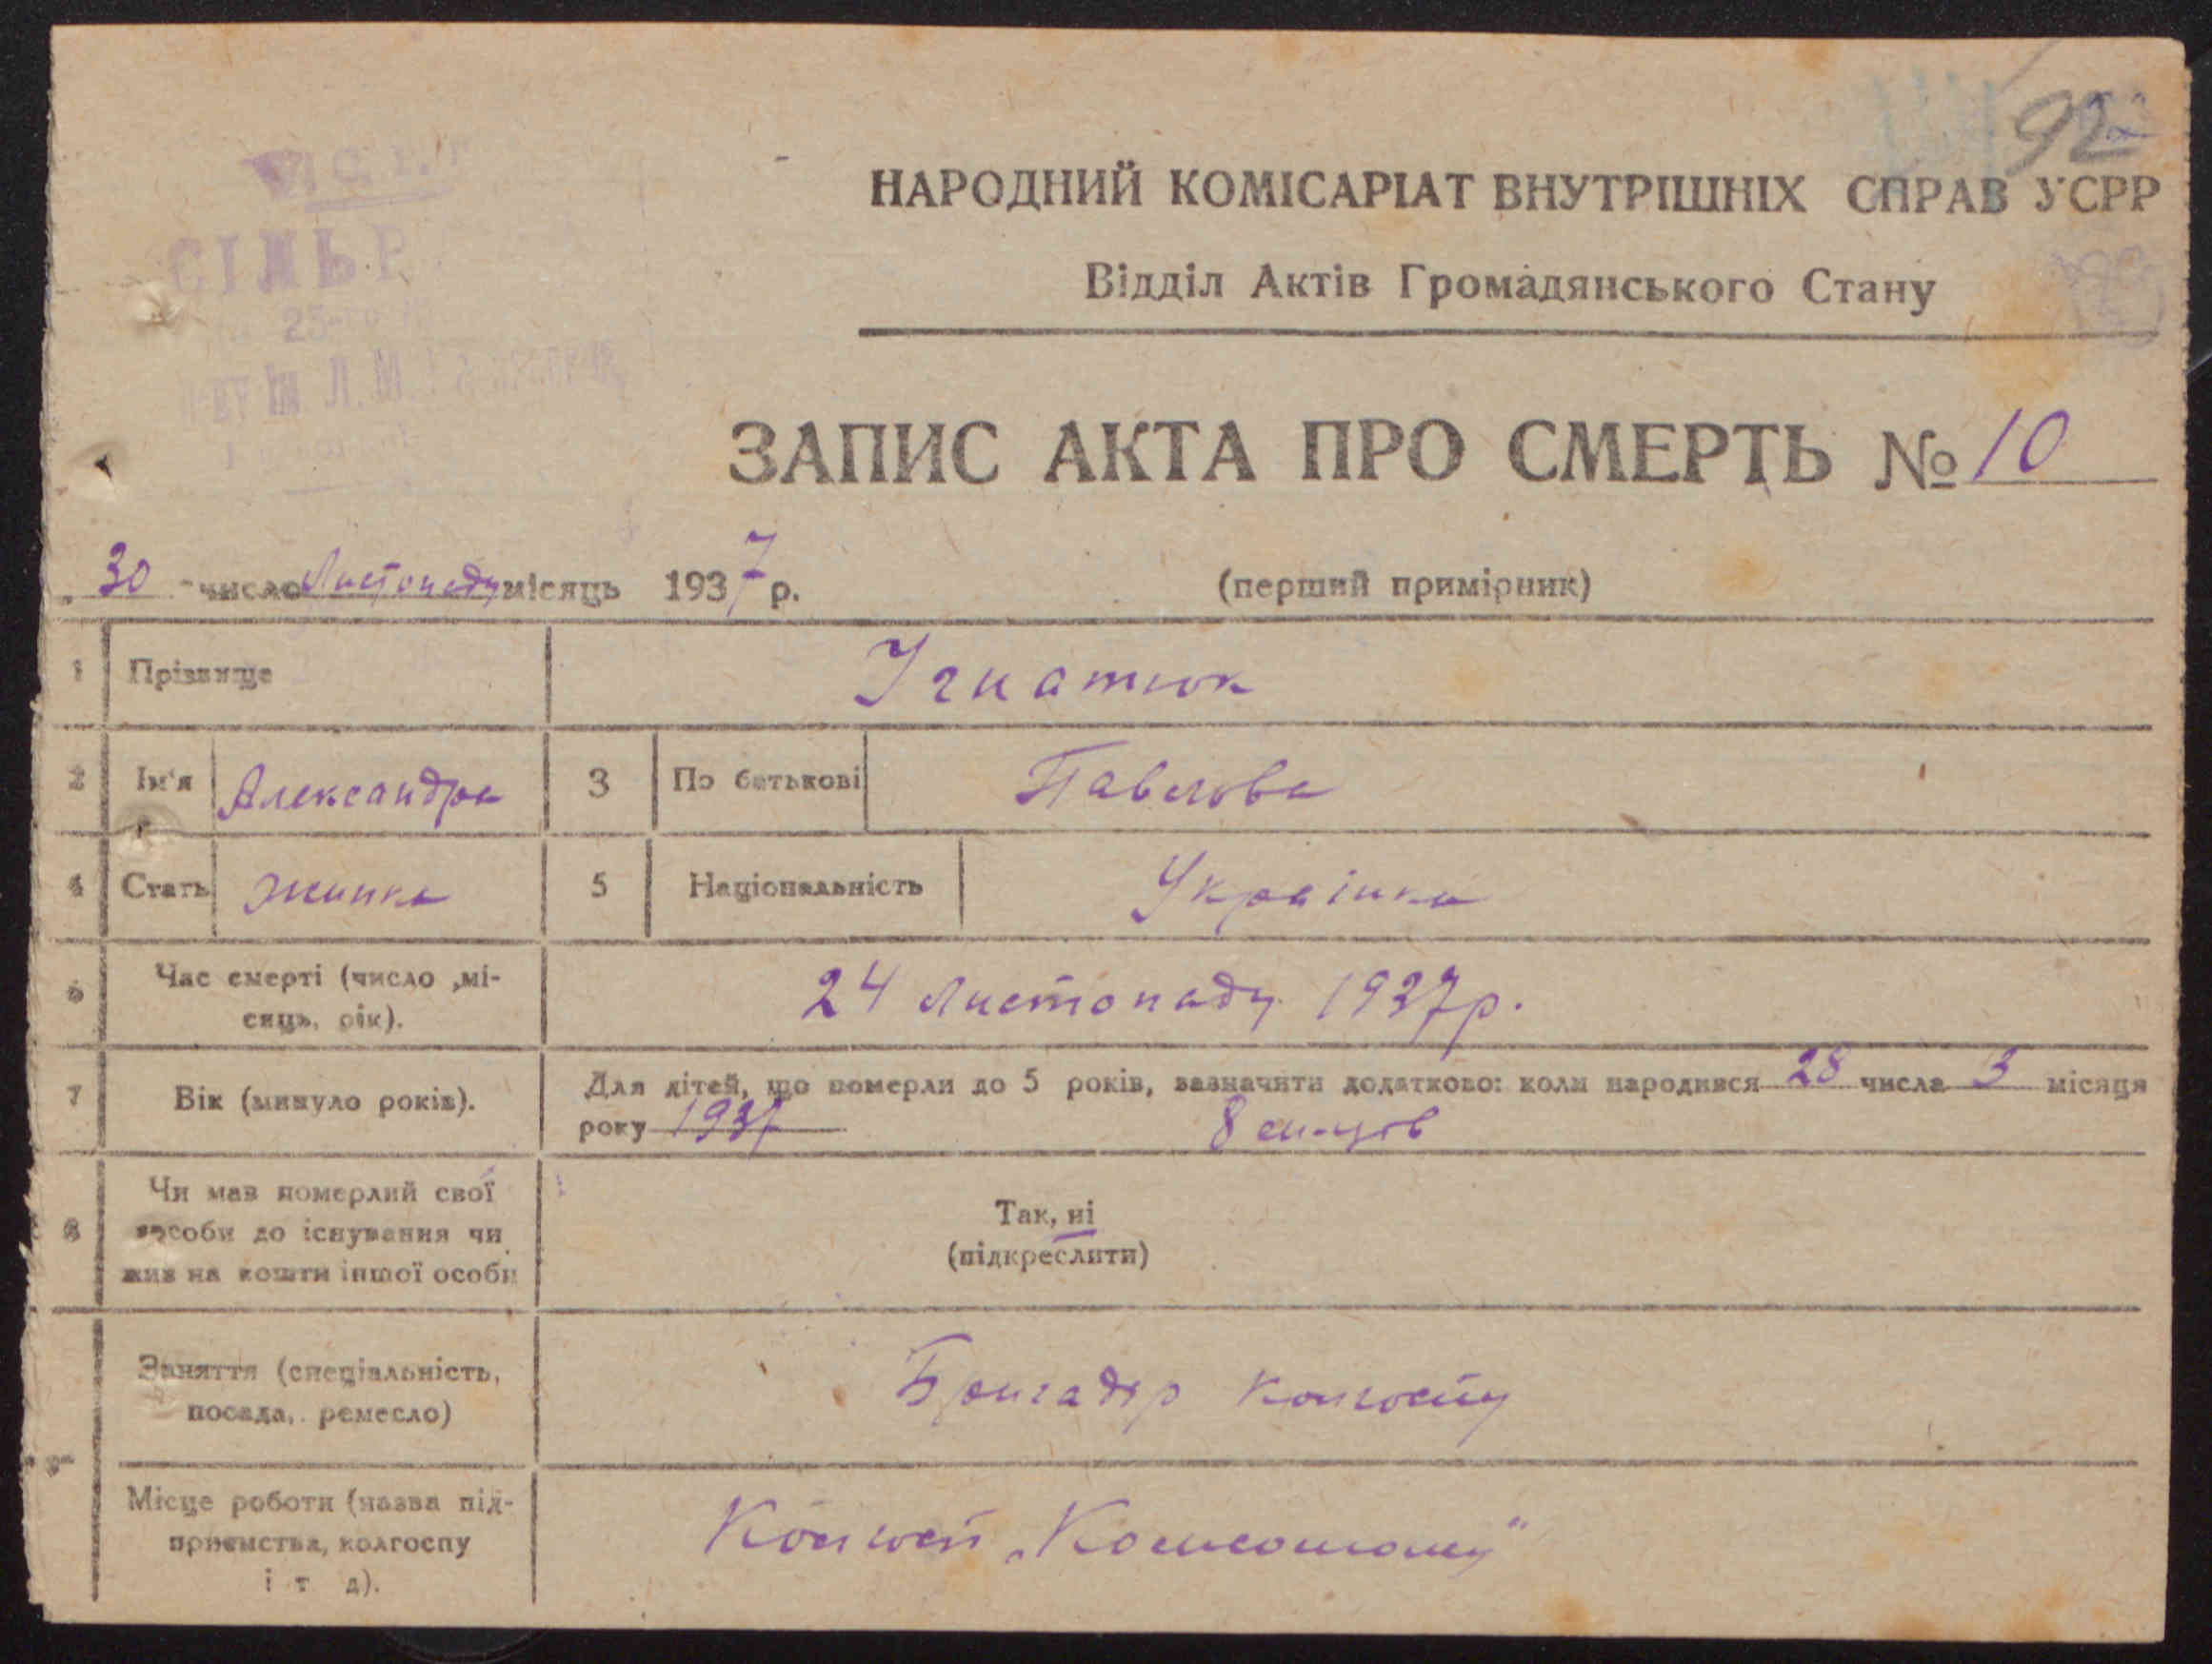 92
НАРОДНИЙ КОМІСАРІАТ ВНУТРІШНІХ СПРАВ УСРР
Відділ Актів Громадянського Стану
СІЛЬР
25-го
ЗАПИС АКТА ПРО СМЕРТЬ № 10
30 число Листопаду місяць 1937 р.
(перший примірник)
1 Прізвище Ігнатюк
2 Ім'я Александра 3 По батькові Павлова
4 Стать жинка 5 Національність Українка
6 Час смерті (число ,мі-
сяць, рік).
24 Листопаду 1937 р.
7 Вік (минуло років).
Для дітей, що померли до 5 років, зазначити додатково: коли народився 28 числа 3 місяця
року 1937
8
8 Чи мав померлий свої
засоби до існування чи
жив на кошти іншої особи
Так, ні
(підкреслити)
Заняття (спеціальність,
посада, ремесло)
Бригадір колгоспу
Місце роботи (назва під-
приємства, колгоспу
і т д).
Колгосп „Комсомолец"